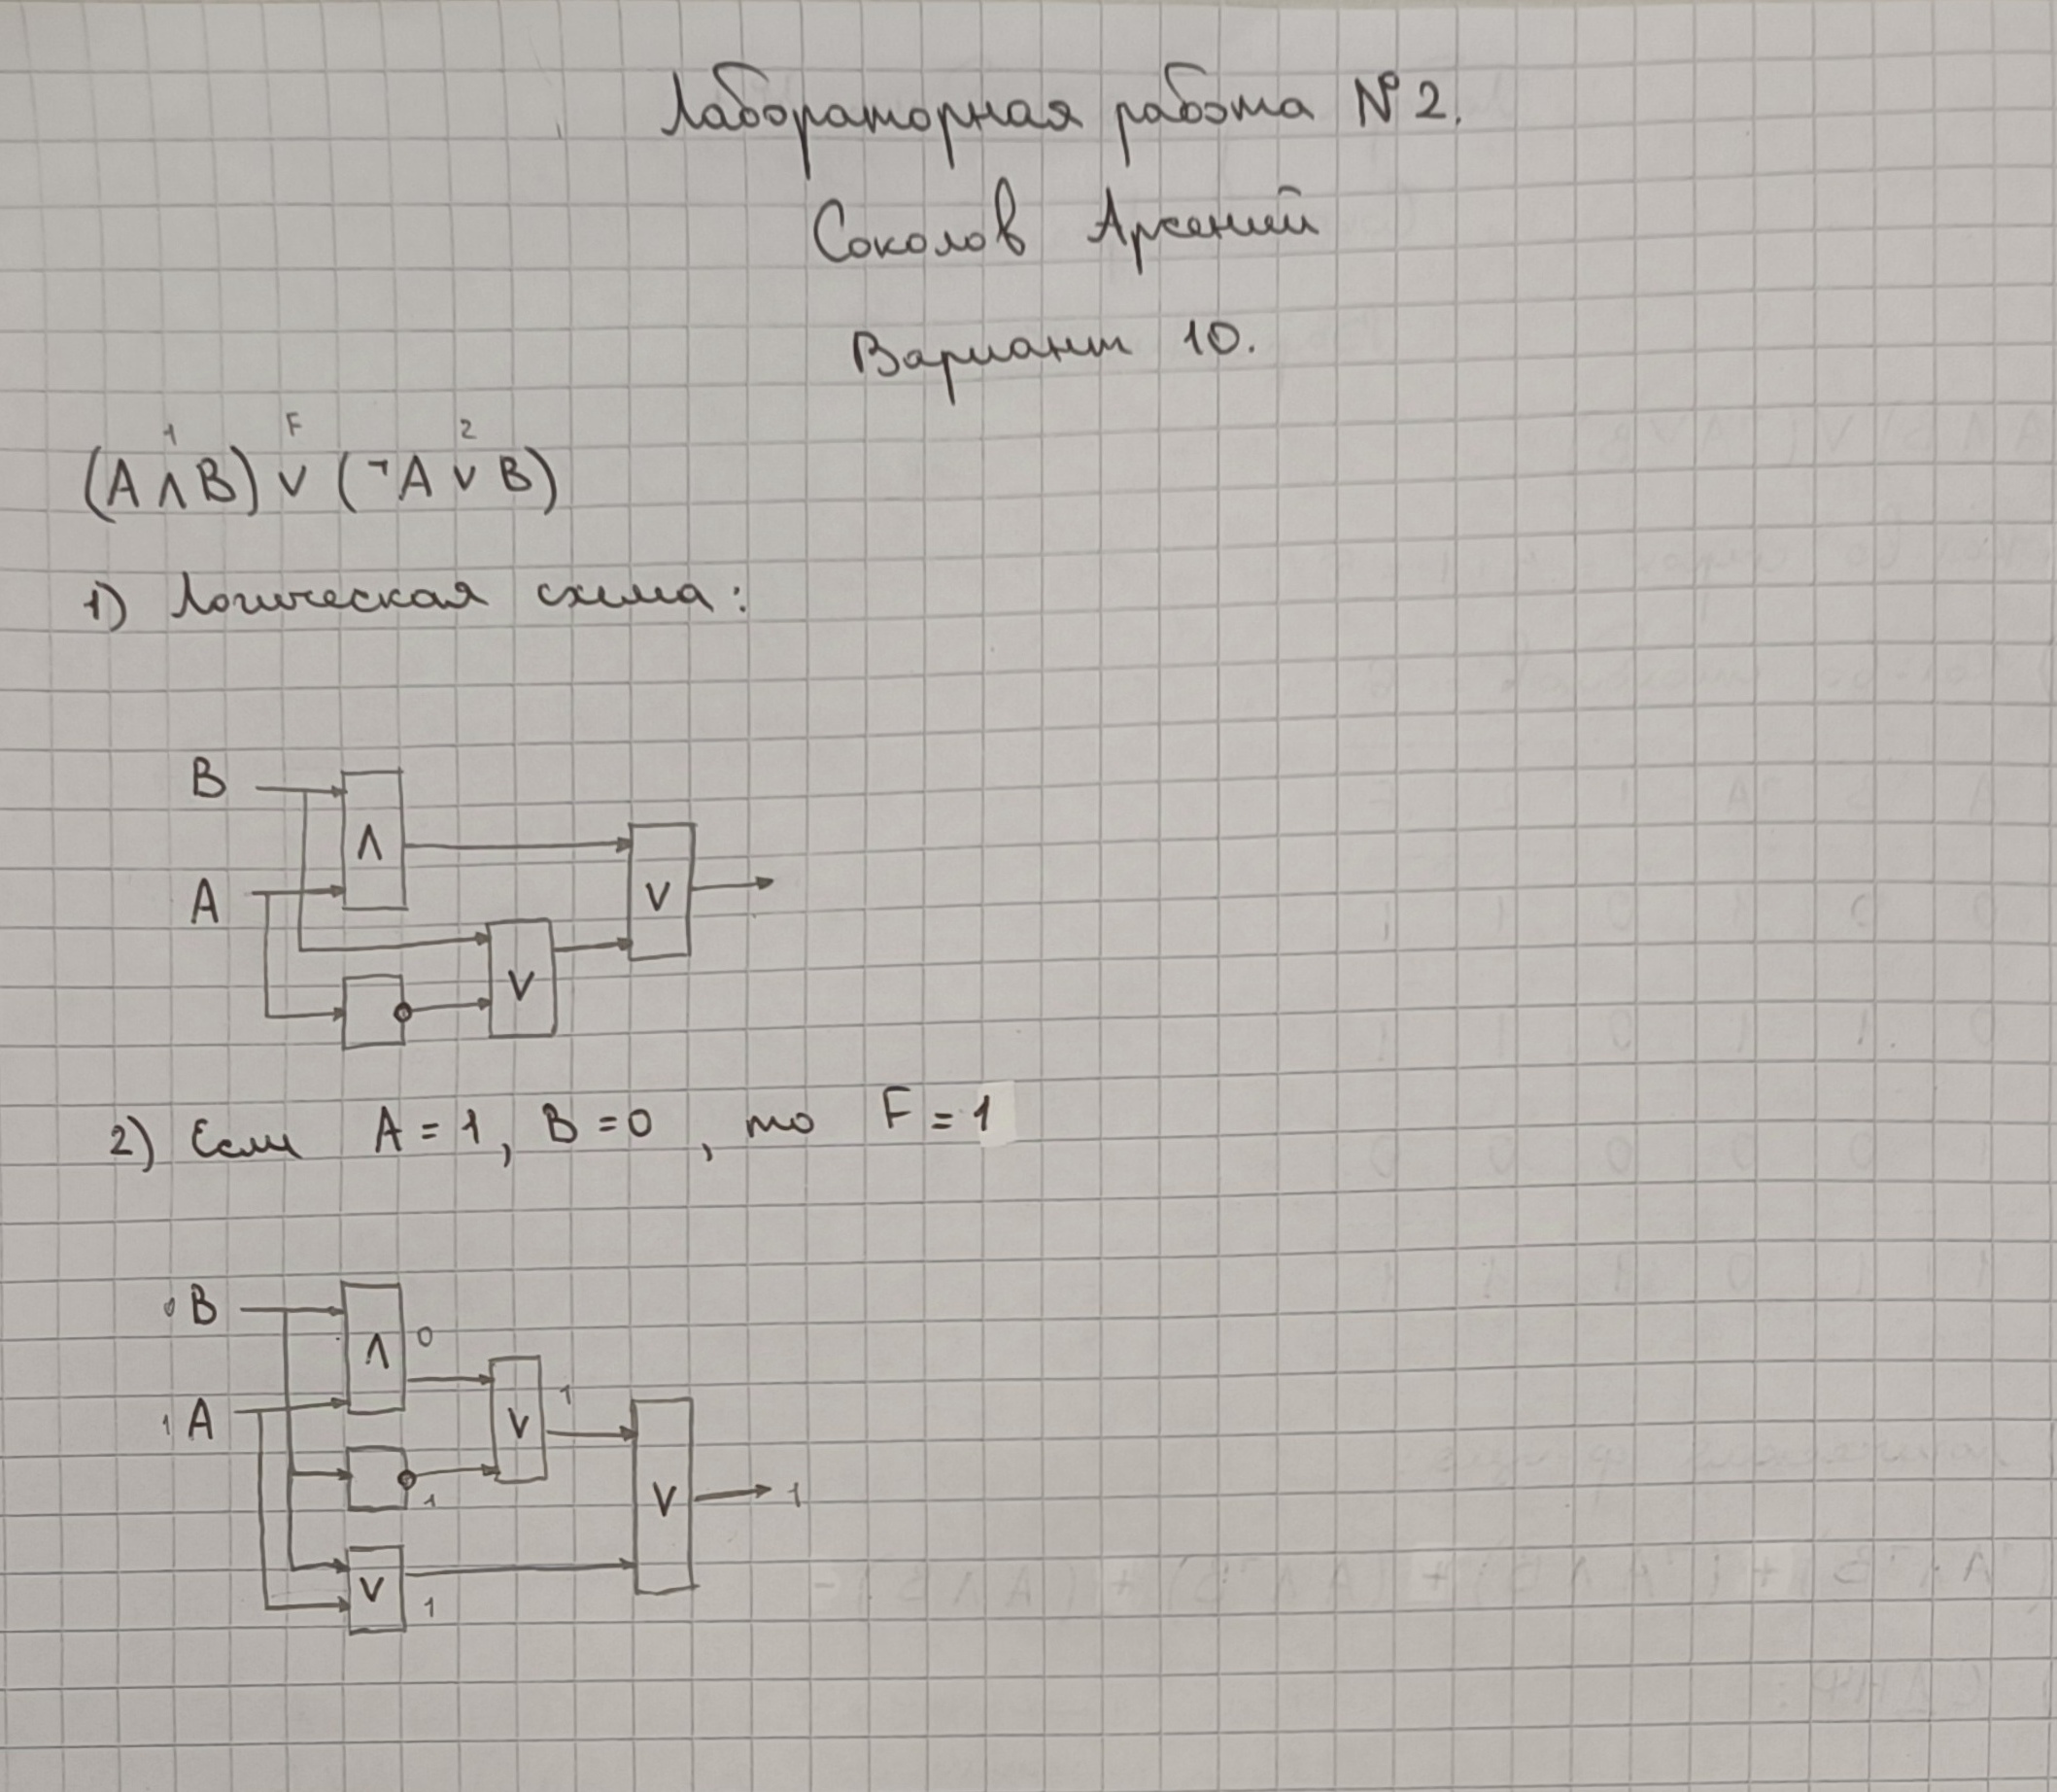 Лабораторная работа №2.
Соколов Арсений
Вариант 10.
1 F 2
(A ∧ B) ∨ (¬A ∨ B)
1) Логическая схема:
B
∧
A
∨
∨
2) Если A = 1, B = 0, то F = 1
0 B
∧ 0
1 A
∨ 1
1
∨ 1
∨ 1